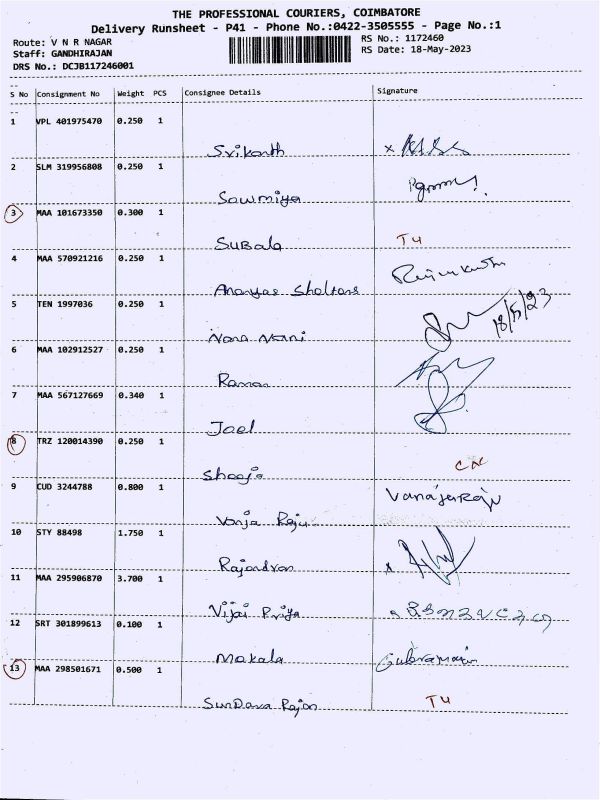 THE PROFESSIONAL COURIERS, COIMBATORE
Delivery Runsheet - P41 - Phone No.:0422-3505555 - Page No.:1
Route: V N R NAGAR
Staff: GANDHIRAJAN
DRS No.: DCJB117246001
RS No.: 1172460
RS Date: 18-May-2023
S No Consignment No Weight PCS Consignee Details Signature
1 VPL 401975470 0.250 1
Srikanth
2 SLM 319956808 0.250 1
Sowmiya
3 MAA 101673350 0.300 1
Subala T4
4 MAA 570921216 0.250 1
Ananyas
5 TEN 1997036 0.250 1
18/5/23
Nara Nani
6 MAA 102912527 0.250 1
Raman
7 MAA 567127669 0.340 1
Joel
8 TRZ 120014390 0.250 1
Shooja
9 CUD 3244788 0.800 1
Vanja Raju
10 STY 88498 1.750 1
Rajandran
11 MAA 295906870 3.700 1
Vijai Priya
12 SRT 301899613 0.100 1
Makala
13 MAA 298501671 0.500 1
SunDara Rajan T4